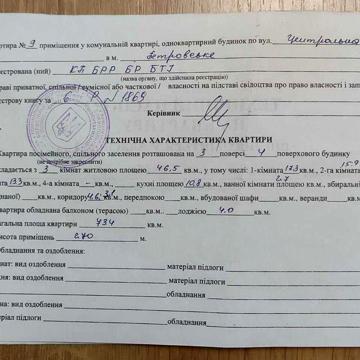 артира № 9 приміщення у комунальній квартирі, одноквартирний будинок по вул. Центральна
в м. Петровське
еєстрована (ний) КП БРР БР БТІ
(назва органу, що здійснила реєстрацію)
праві приватної, спільної/сумісної або часткової / власності на підставі свідоцтва про право власності і зап
естрову книгу за № 1869
Керівник
ТЕХНІЧНА ХАРАКТЕРИСТИКА КВАРТИРИ
Квартира посімейного, спільного заселення розташована на 3 поверсі 4 поверхового будинку
(не потрібне закреслити)
кладається з 3 кімнат житловою площею 46,5 кв.м., у тому числі: 1-кімната 17.3 кв.м., 2-га кімната 15.9
ата 13.3 кв.м., 4-а кімната – кв.м., кухні площею 10,8 кв.м., ванної кімнати площею 2.7 кв.м., вбиральні
кв.м., коридору кв.м., передпокою кв.м., вбудованої шафи кв.м., веранди кв.м.
Квартира обладнана балконом (терасою) кв.м., лоджією 4.0 кв.м.
агальна площа квартири 73.4 кв.м.
исота приміщень 2.70 м.
бладнання та оздоблення:
нат: вид оздоблення матеріал підлоги
ня: вид оздоблення матеріал підлоги
обладнання
на: вид оздоблення матеріал підлоги
обладнання